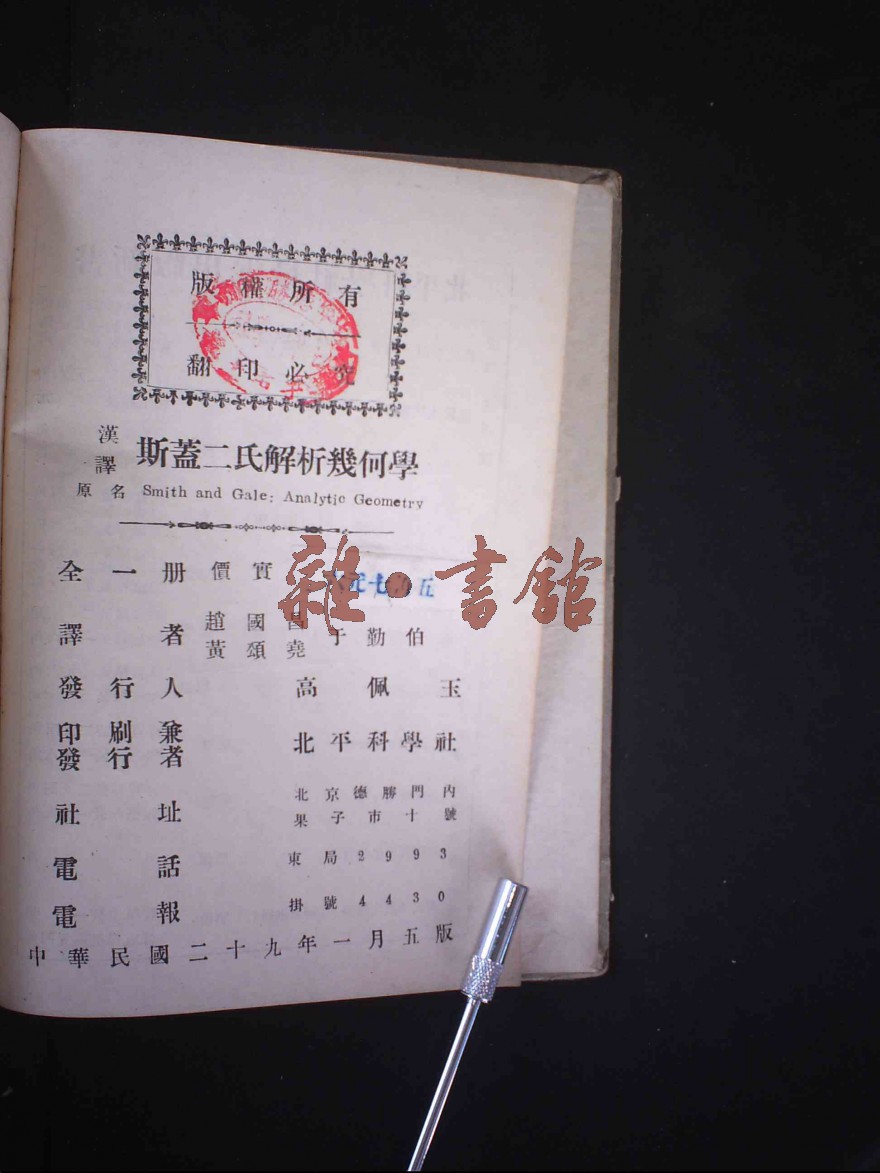 版權所有
翻印必究
漢譯 斯蓋二氏解析幾何學
原名 Smith and Gale: Analytic Geometry
全一册 價實
雜·書館
譯者 趙國昌 于勤伯
黃頌堯
發行人 高佩玉
印刷兼
發行者 北平科學社
社址 北京德勝門內
果子市十號
電話 東局2993
電報 掛號4430
中華民國二十九年一月五版